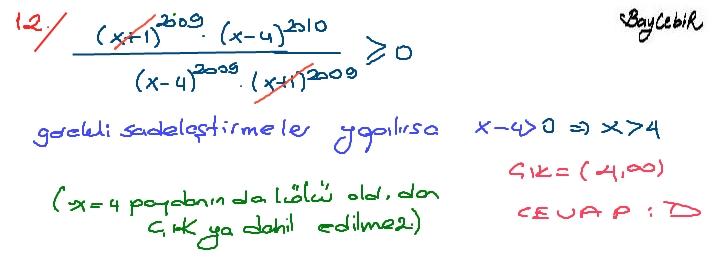 12/ (x+1)^2009 . (x-4)^2010 / (x-4)^2009 . (x+1)^2009 ≥ 0
BayCebiR
gerekli sadeleştirmeler yapılırsa x-4>0 ⇒ x>4
Ç.K = (4,∞)
(x=4 paydanın da kökü old. dan
Ç.K ya dahil edilmez)
CEVAP : D